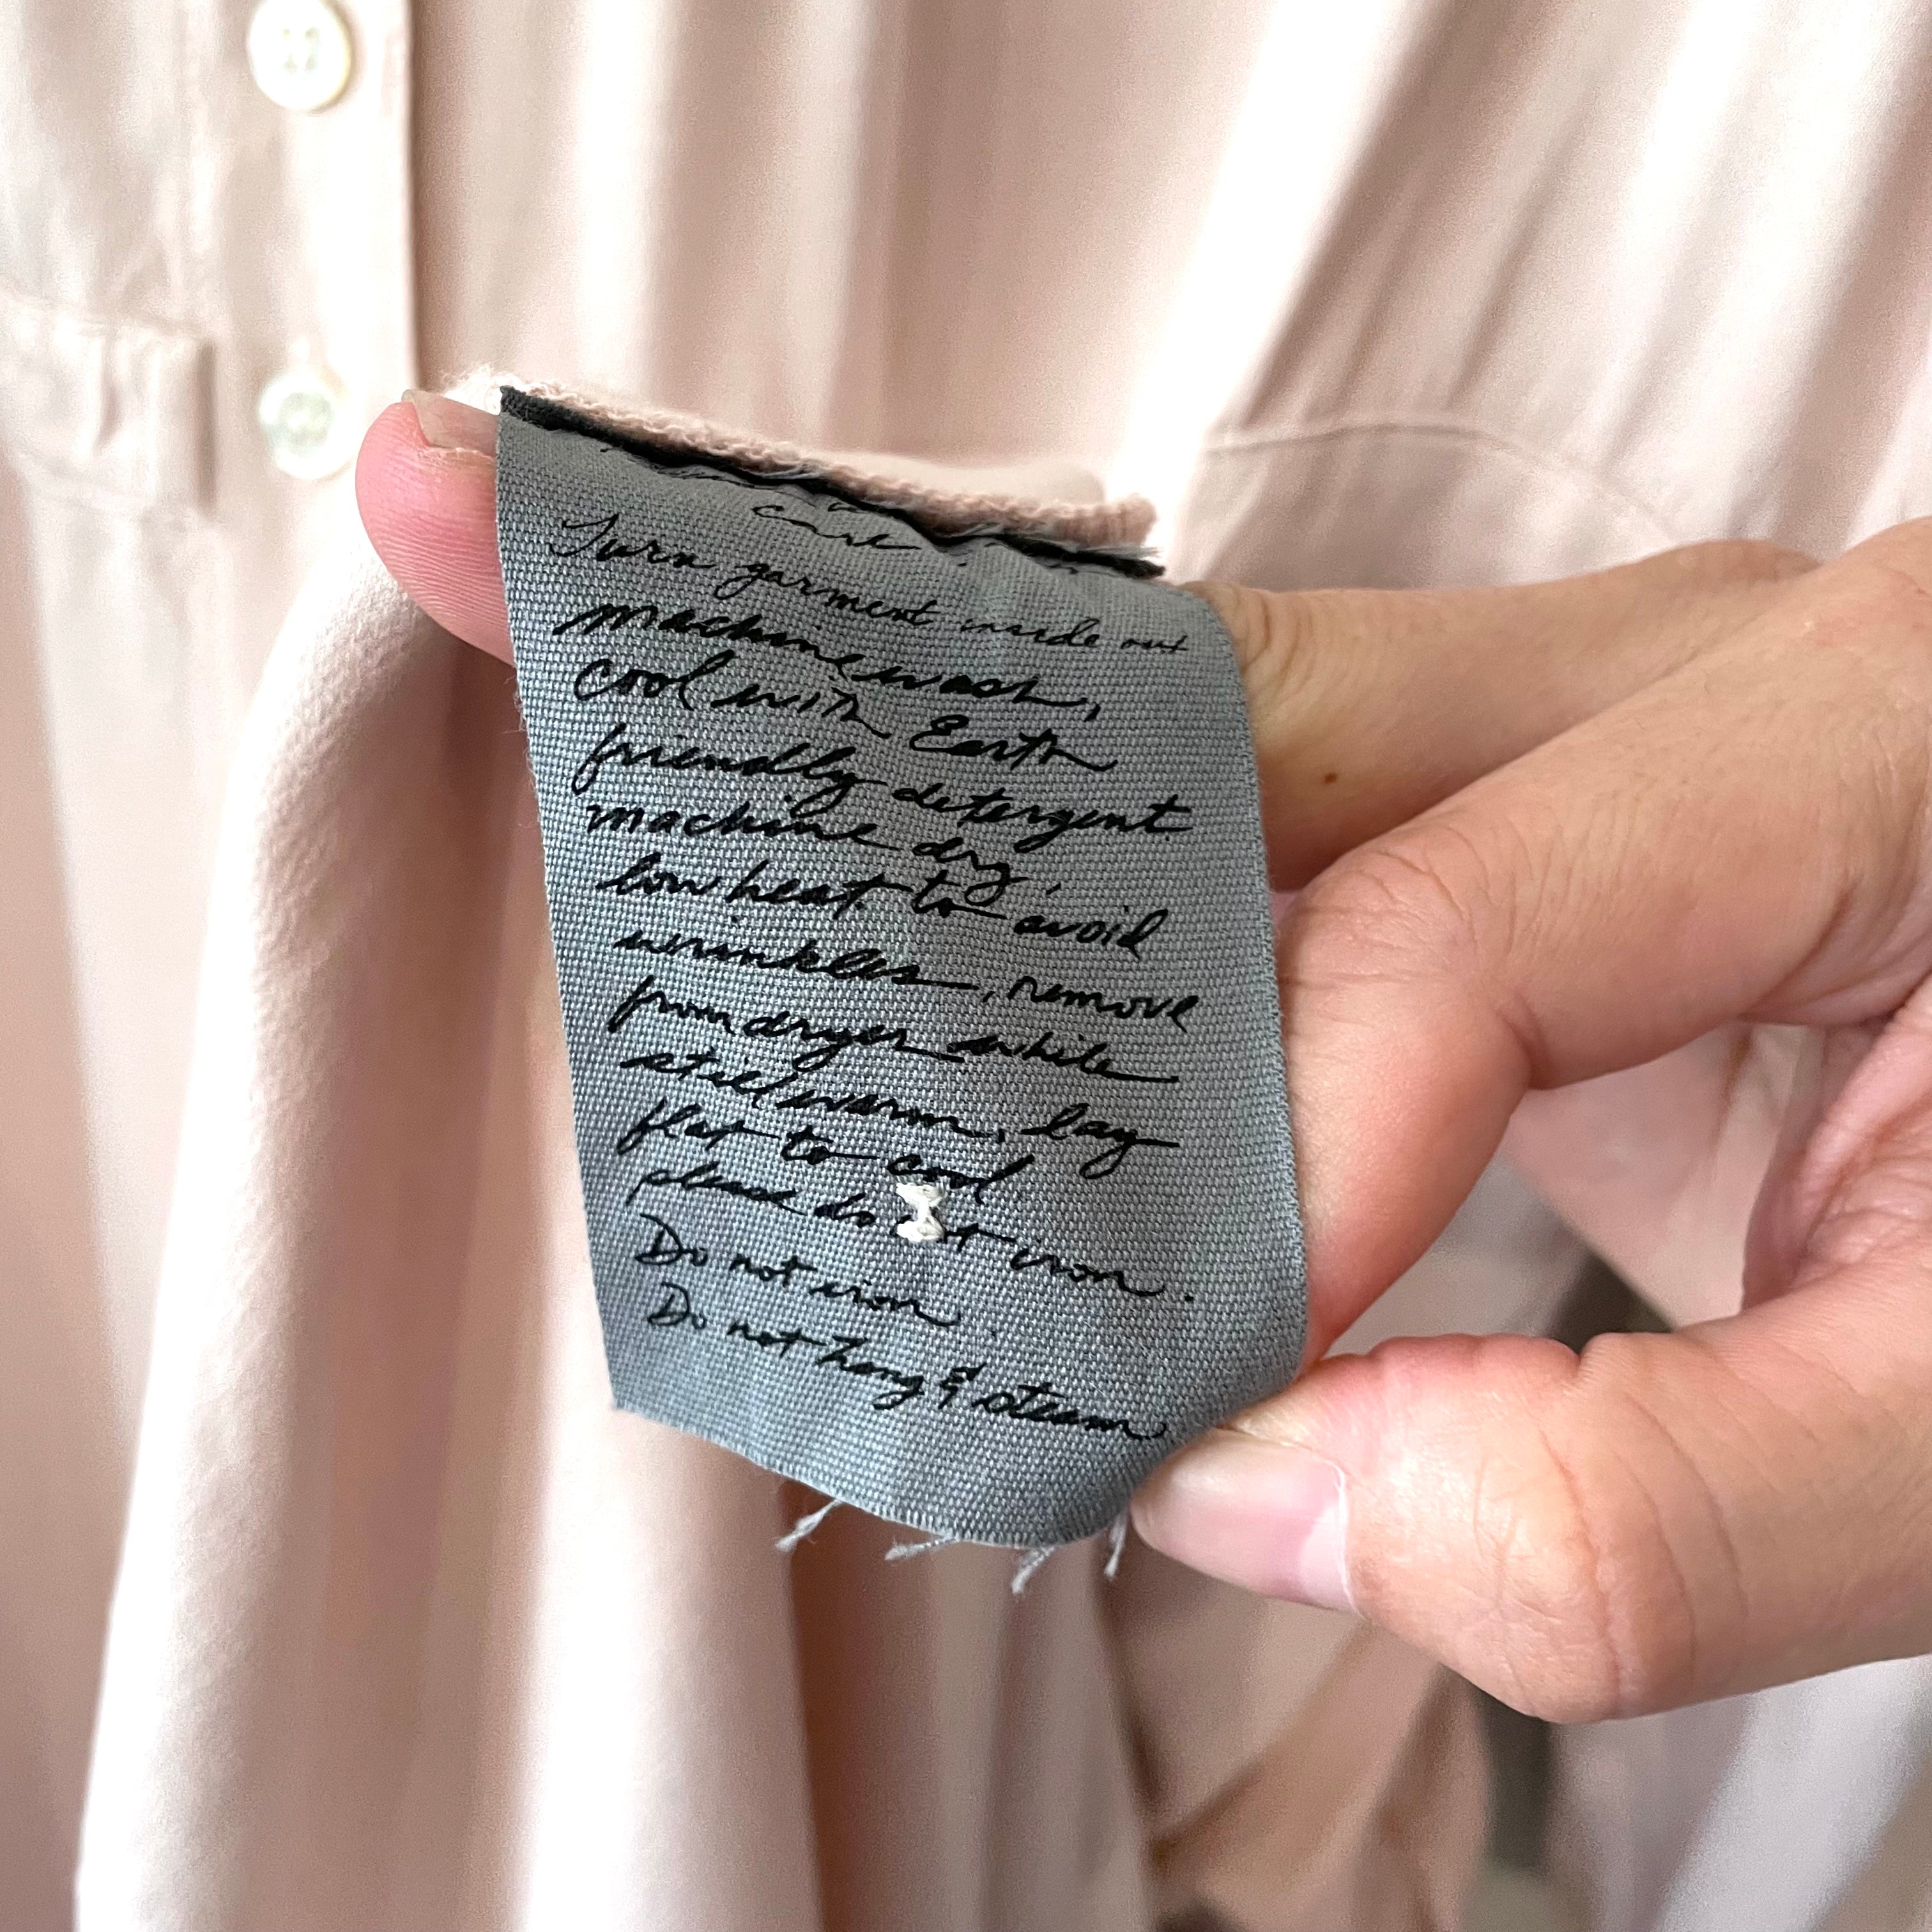 care
Turn garment inside out
machine wash,
cool with Earth
friendly detergent
machine dry,
low heat to avoid
wrinkles, remove
from dryer while
still warm, lay
flat to cool
please do not iron.
Do not iron.
Do not hang & steam